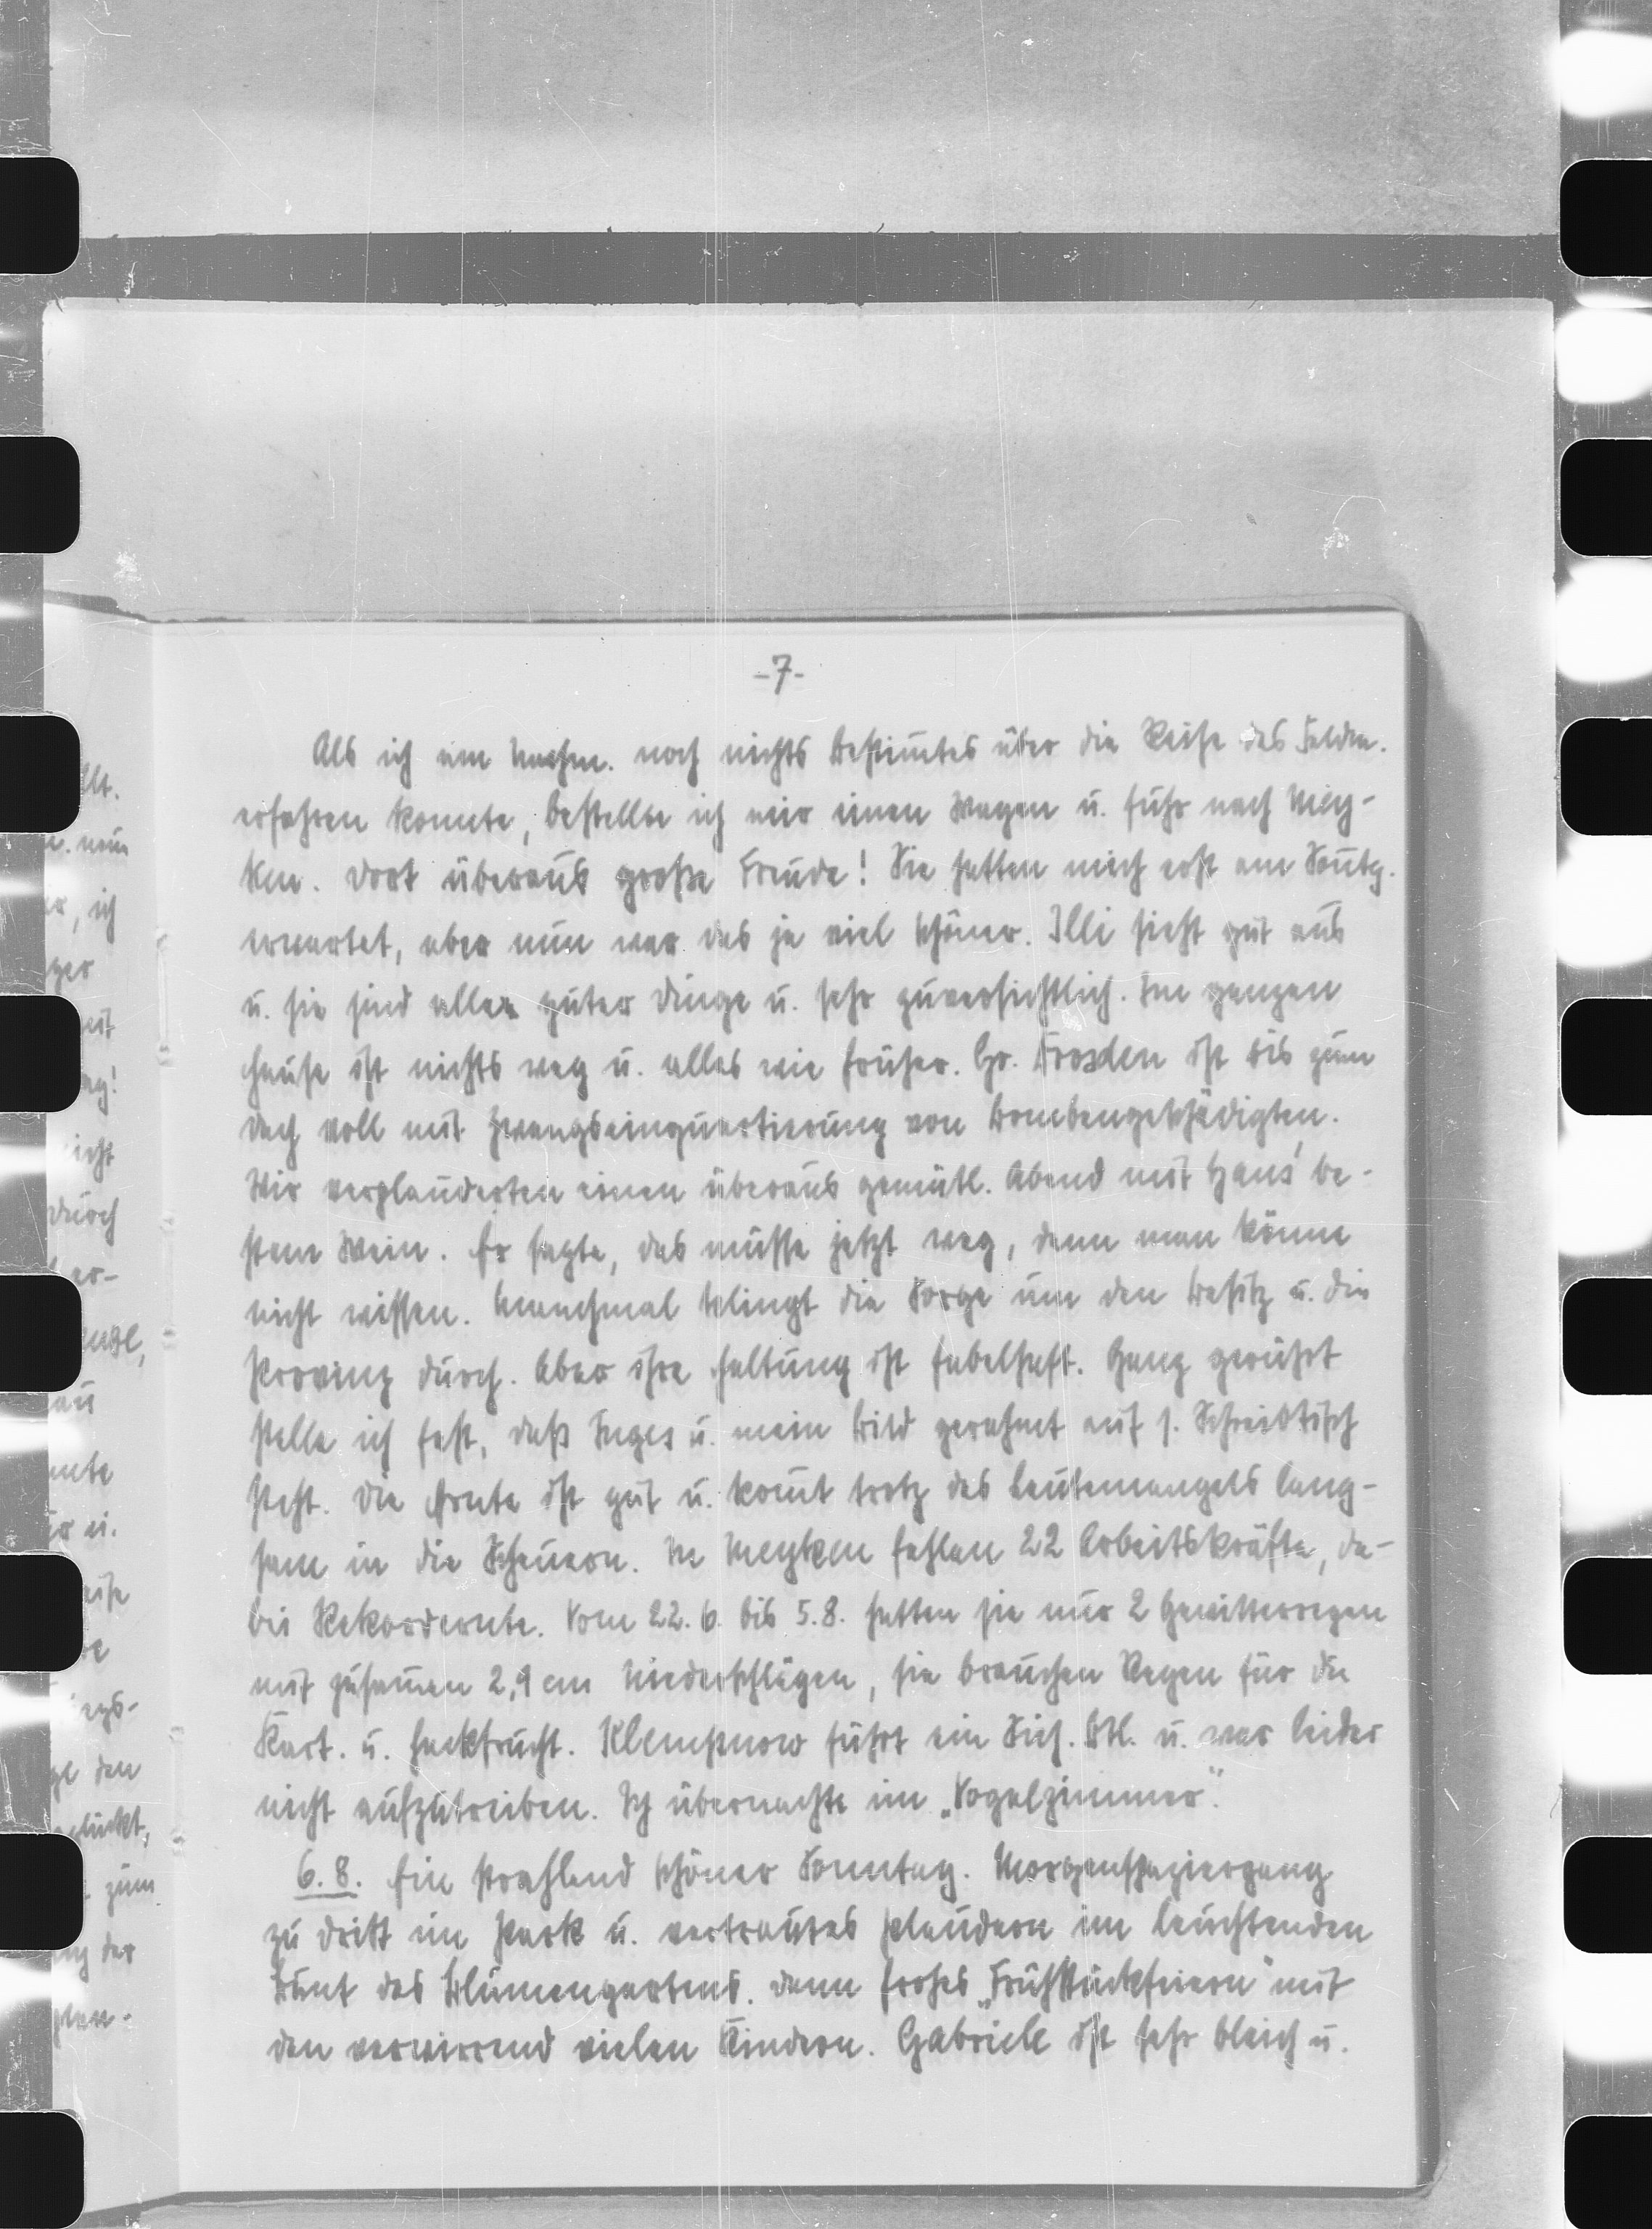 -7-
Als ich am Nachm. noch nichts Bestimtes über die Reise des Feldm.
erfahren konnte, bestellte ich mir einen Wagen u. fuhr nach Mey-
ken. Dort überaus große Freude! Sie hatten mich erst am Sontg.
erwartet, aber nun war das ja viel schöner. Illi sieht gut aus
u. sie sind aller guter Dinge u. sehr zuversichtlich. Im ganzen
Hause ist nichts weg u. alles wie früher. Gr. Drosden ist bis zum
Dach voll mit Zwangseinquartierung von Bombengeschädigten.
Wir verplauderten einen überaus gemütl. Abend mit Hans' be-
stem Wein. Er sagte, das müsse jetzt weg, denn man könne
nicht wissen. Manchmal klingt die Sorge um den Besitz u. die
Provinz durch. Aber ihre Haltung ist fabelhaft. Ganz gerührt
stelle ich fest, daß Inges u. mein Bild gerahmt auf s. Schreibtisch
steht. Die Ernte ist gut u. komt trotz des Leutemangels lang-
sam in die Scheuern. In Meyken fehlen 22 Arbeitskräfte, da-
bei Rekordernte. Vom 22.6. bis 5.8. hatten sie nur 2 Gewitterregen
mit zusamen 2,9 cm Niederschlägen, sie brauchen Regen für die
Kart. u. Hackfrucht. Klempnow führt ein Sich. Btl. u. war leider
nicht aufzutreiben. Ich übernachte im „Vogelzimmer".
6.8. Ein strahlend schöner Sonntag. Morgenspaziergang
zu dritt im Park u. vertrautes Plaudern im leuchtenden
Bunt des Blumengartens. Dann frohes „Frühstückfeiern" mit
den verwirrend vielen Kindern. Gabriele ist sehr bleich u.